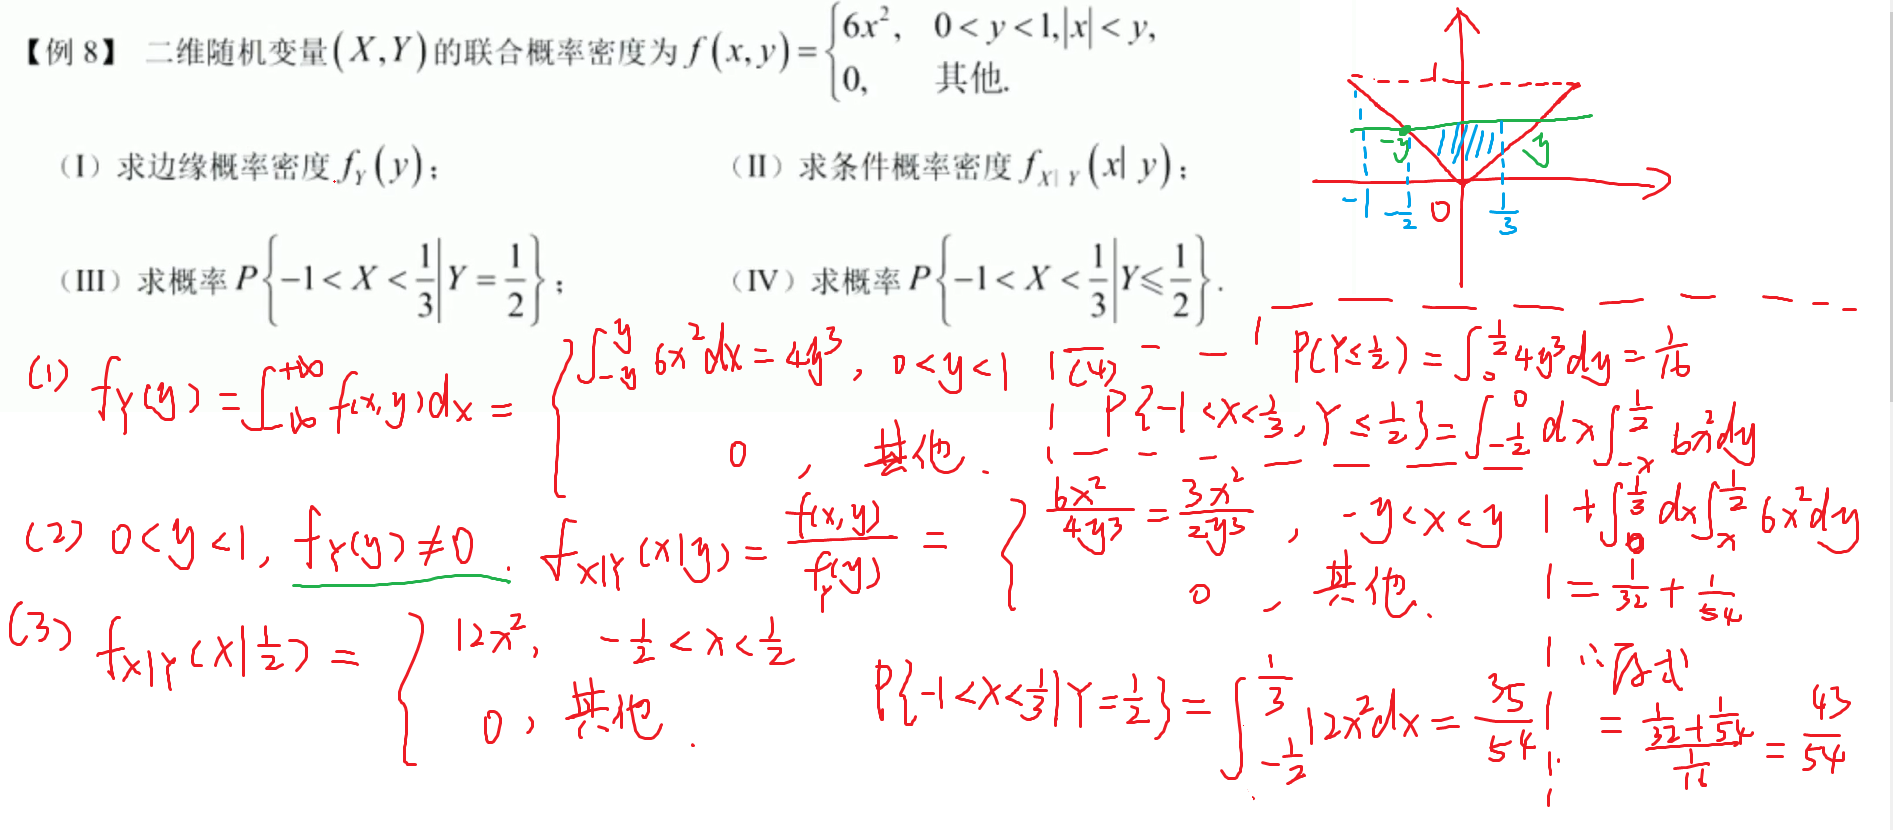 【例 8】 二维随机变量(X,Y)的联合概率密度为 f(x,y)={6x², 0<y<1,|x|<y,
0, 其他.
（I）求边缘概率密度 f_Y(y)；
（II）求条件概率密度 f_{X|Y}(x|y)；
（III）求概率 P{-1<X<1/3|Y=1/2}；
（IV）求概率 P{-1<X<1/3|Y≤1/2}.
1
-y
y
-1
-1/2
0
1/3
(1) f_Y(y)=∫_{-∞}^{+∞} f(x,y)dx={∫_{-y}^{y} 6x²dx=4y³, 0<y<1
0, 其他.
(2) 0<y<1, f_Y(y)≠0. f_{X|Y}(x|y)=f(x,y)/f_Y(y)={6x²/4y³=3x²/2y³, -y<x<y
0, 其他.
(3) f_{X|Y}(x|1/2)={12x², -1/2<x<1/2
0, 其他.
P{-1<X<1/3|Y=1/2}=∫_{-1/2}^{1/3} 12x²dx=35/54
(4)
P(Y≤1/2)=∫_0^{1/2} 4y³dy=1/16
P{-1<X<1/3,Y≤1/2}=∫_{-1/2}^{0} dx∫_{-x}^{1/2} 6x²dy
+∫_0^{1/3} dx∫_x^{1/2} 6x²dy
=1/32+1/54
∴原式
=(1/32+1/54)/(1/16)=43/54